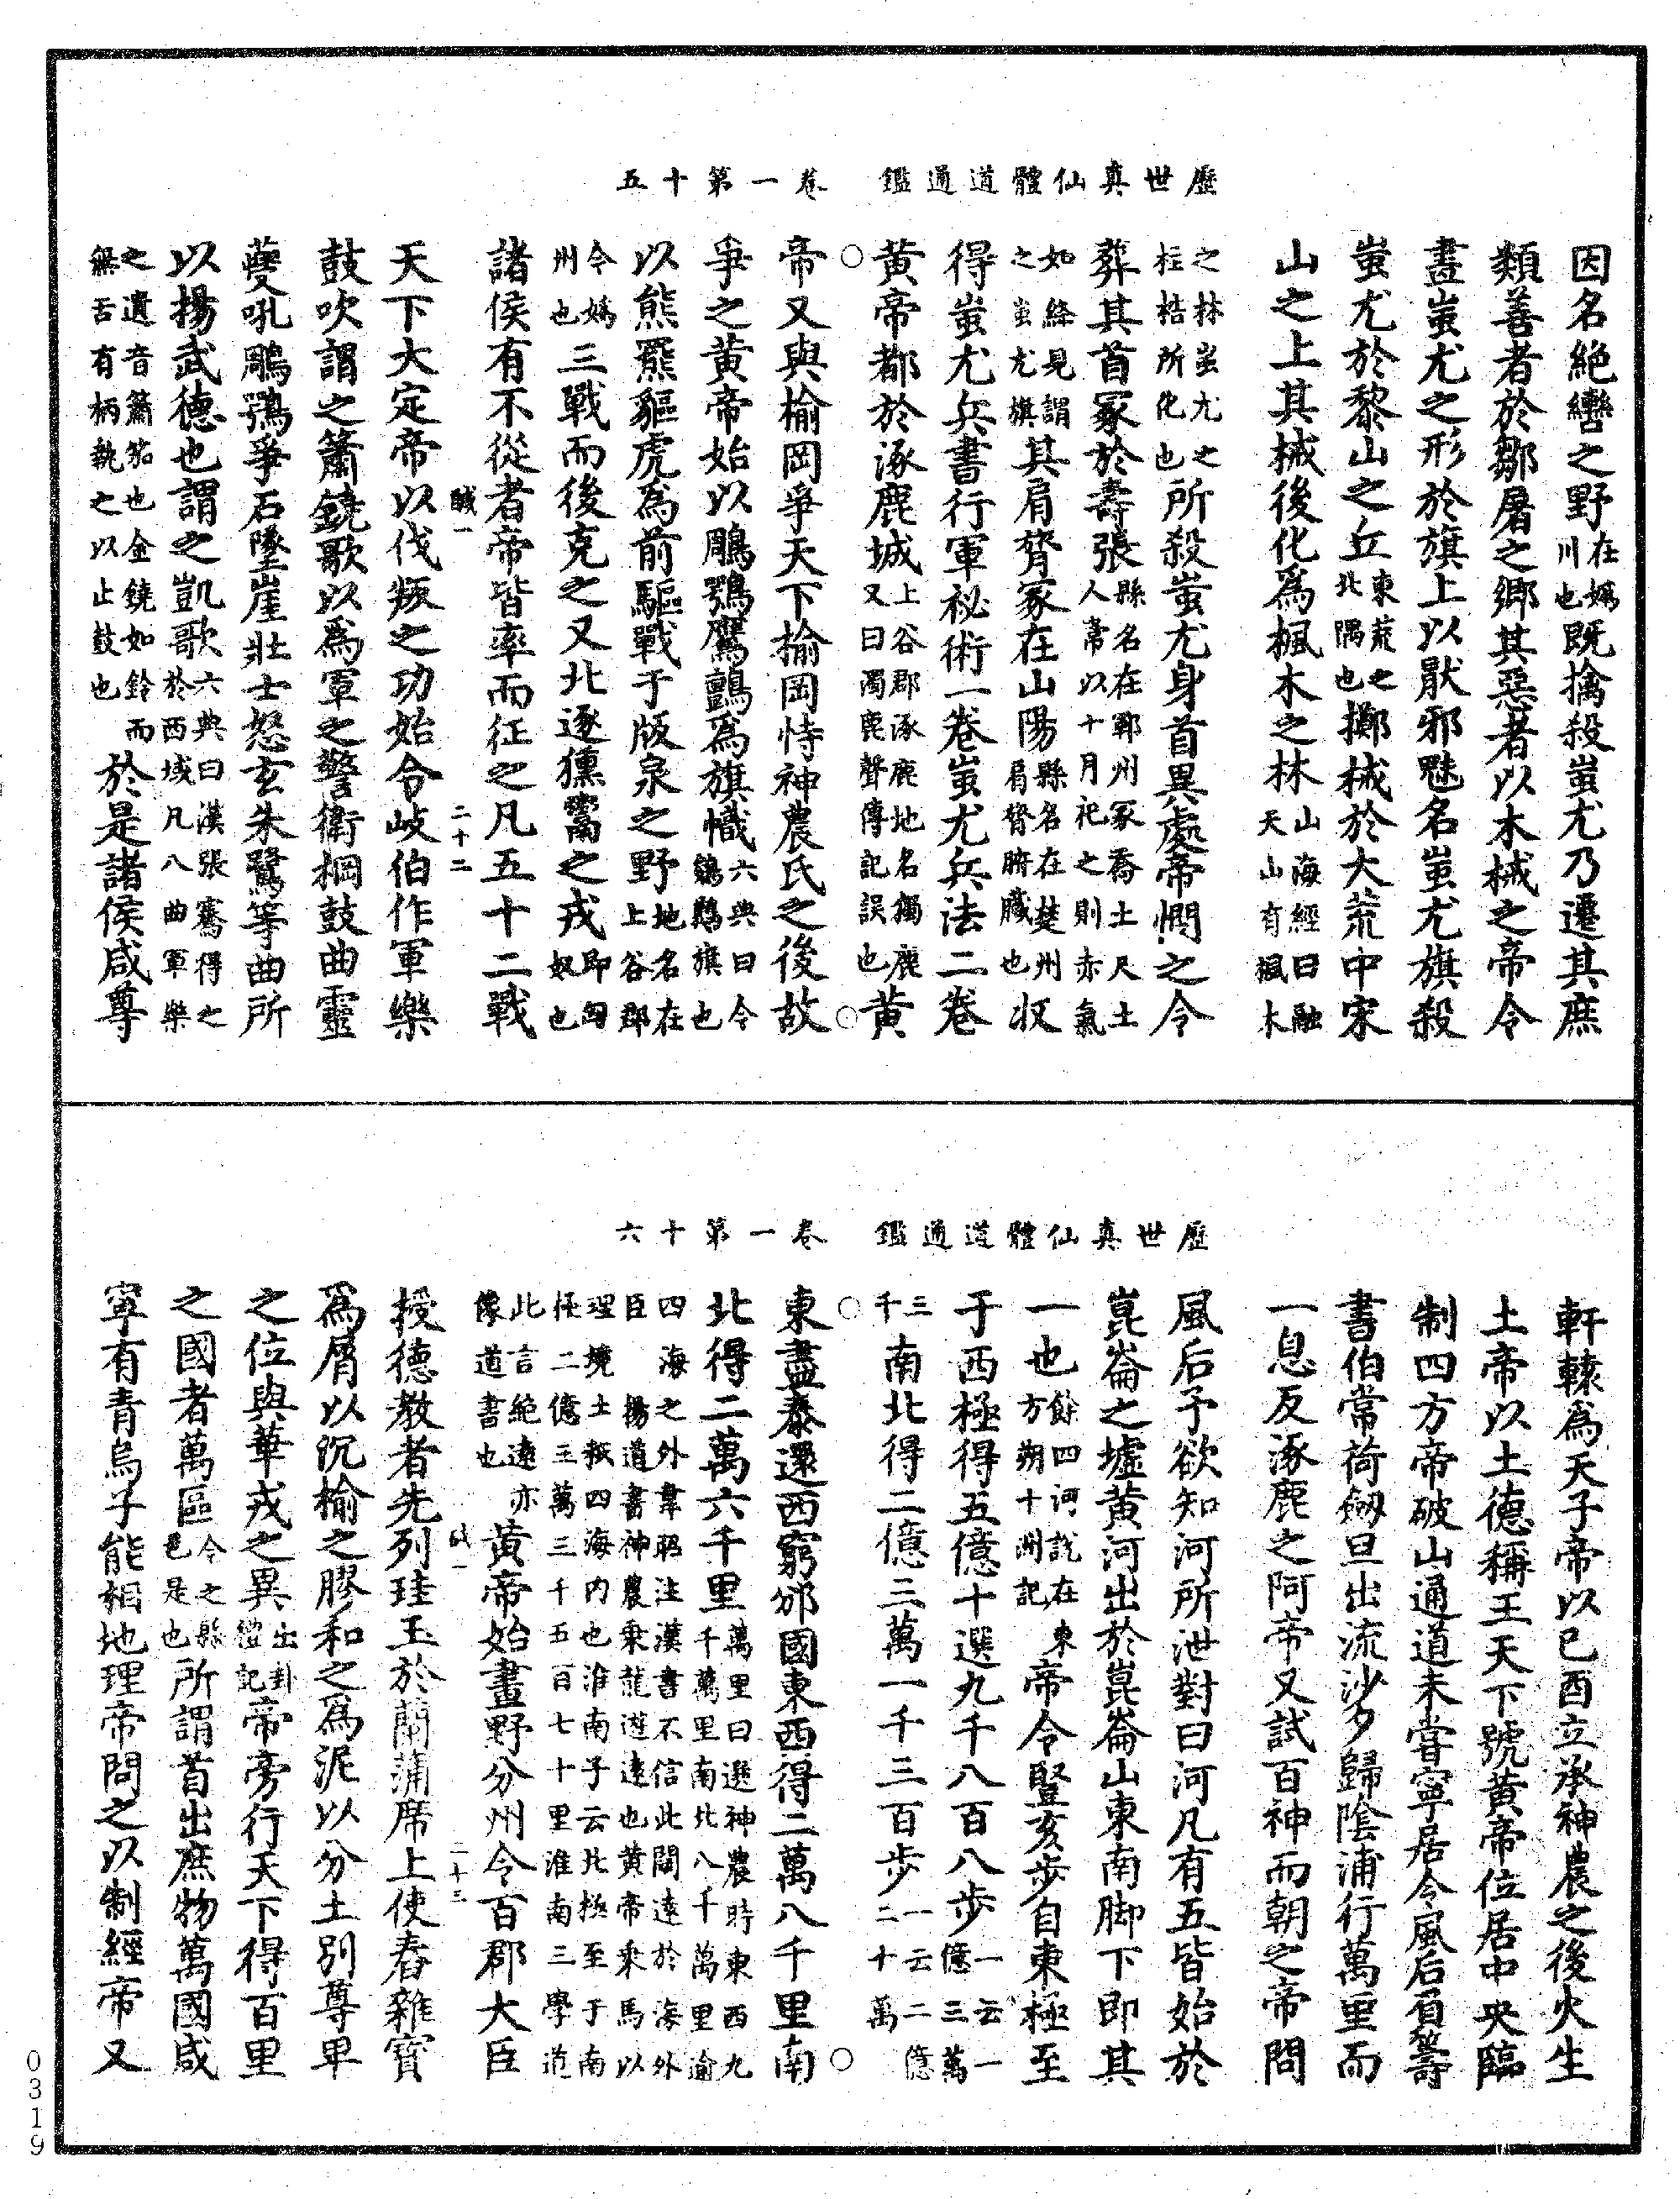 歷世真仙體道通鑑　卷一第十五
因名絕轡之野在媯川也既擒殺蚩尤乃遷其庶
類善者於鄒屠之鄉其惡者以木械之帝令
畫蚩尤之形於旗上以厭邪魅名蚩尤旗殺
蚩尤於黎山之丘東荒之北隅也擲械於大荒中宋
山之上其械後化為楓木之林山海經曰融天山有楓木
之林蚩尤之桎梏所化也所殺蚩尤身首異處帝憫之令
葬其首冢於壽張縣名在鄆州冢高七尺土人常以十月祀之則赤氣
如絳見謂之蚩尤旗其肩脅冢在山陽縣名在楚州肩脅腑臟也收
得蚩尤兵書行軍祕術一卷蚩尤兵法二卷
黃帝都於涿鹿城上谷郡涿鹿地名獨鹿又曰濁鹿聲傳記誤也○黃
○帝又與榆岡爭天下榆岡恃神農氏之後故
爭之黃帝始以鵰鶚鷹鸇為旗幟六典曰今鷂鶡旗也
以熊羆貙虎為前驅戰于版泉之野地名在上谷郡
今媯州也三戰而後克之又北逐獯鬻之戎即匈奴也
諸侯有不從者帝皆率而征之凡五十二戰
醎一　二十二
天下大定帝以伐叛之功始令岐伯作軍樂
鼓吹謂之簫鐃歌以為軍之警衛棡鼓曲靈
夔吼鵰鶚爭石墜崖壯士怒玄朱鷺等曲所
以揚武德也謂之凱歌六典曰漢張騫得之於西域凡八曲軍樂
之遺音簫笳也金鐃如鈴而無舌有柄執之以止鼓也於是諸侯咸尊
歷世真仙體道通鑑　卷一第十六
軒轅為天子帝以己酉立承神農之後火生
土帝以土德稱王天下號黃帝位居中央臨
制四方帝破山通道未嘗寧居令風后負籌
書伯常荷劒旦出流沙夕歸陰浦行萬里而
一息反涿鹿之阿帝又試百神而朝之帝問
風后予欲知河所泄對曰河凡有五皆始於
崑崙之墟黃河出於崑崙山東南脚下即其
一也餘四河說在東方朔十洲記帝令豎亥步自東極至
于西極得五億十選九千八百八步一云一億三萬
三千南北得二億三萬一千三百步一云二億二十萬
○東盡泰遠西窮邠國東西得二萬八千里南○
北得二萬六千里萬里曰選神農時東西九千萬里南北八千萬里逾
四海之外韋昭注漢書不信此闊遠於海外臣　揚道書神農乘龍遊遠也黃帝乘馬以
理境土秖四海內也淮南子云北極至于南極二億三萬三千五百七十里淮南三學道
此言絕遠亦像道書也黃帝始畫野分州令百郡大臣
醎一　二十三
授德教者先列珪玉於蘭蒲席上使舂雜寶
為屑以沉榆之膠和之為泥以分土別尊卑
之位與華戎之異出卦禮記帝旁行天下得百里
之國者萬區今之縣邑是也所謂首出庶物萬國咸
寧有青烏子能相地理帝問之以制經帝又
0319